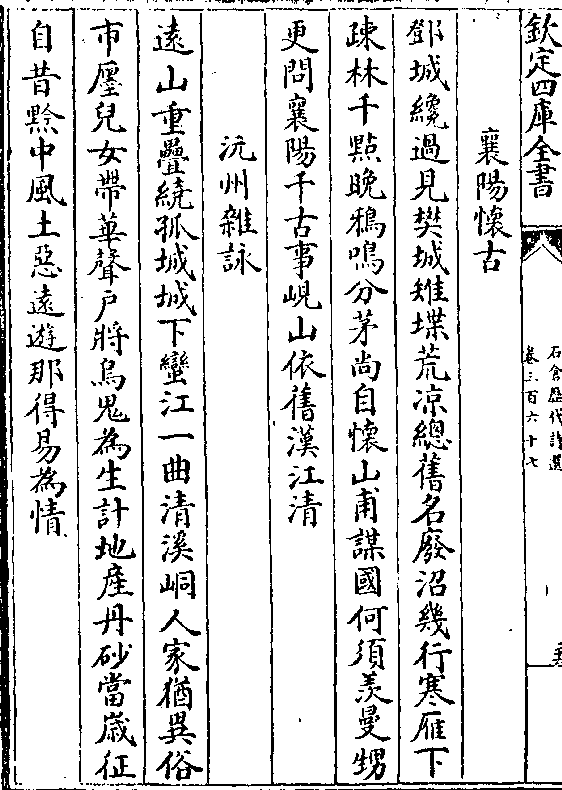 欽定四庫全書
石倉歷代詩選
卷三百六十七
襄陽懷古
鄧城纔過見樊城雉堞荒凉總舊名廢沼幾行寒雁下
疎林千點晚鴉鳴分茅尚自懷山甫謀國何須羨曼甥
更問襄陽千古事峴山依舊漢江清
沅州雜詠
遠山重疊繞孤城城下蠻江一曲清溪峒人家猶異俗
市廛兒女帶華聲戶將烏鬼為生計地産丹砂當嵗征
自昔黔中風土惡遠遊那得易為情